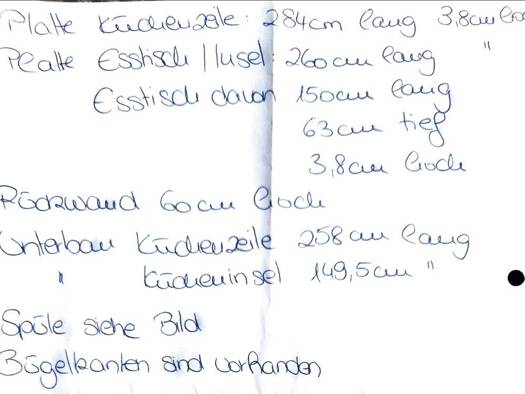 Platte Küchenzeile: 284cm lang 3,8cm
Platte Esstisch/Insel: 260cm lang "
Esstisch davon 150cm lang
63cm tief
3,8cm hoch
Rückwand 60cm hoch
Unterbau Küchenzeile 258cm lang
" Kücheninsel 149,5cm "
Spüle siehe Bild
Bügelkanten sind vorhanden